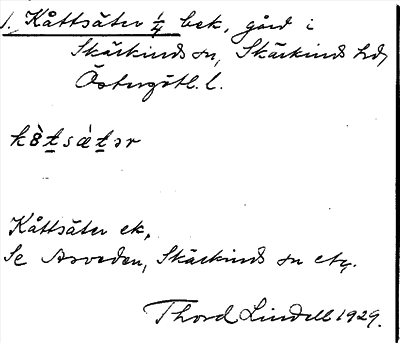 1. Kåttsäter 1/4 bek, gård i
Skärkinds sn, Skärkinds hd,
Östergötl. l.
kö̀tsæ̀tər
Kåttsäter ek.
Se Asveden, Skärkinds sn etc.
Thord Lindell 1929.